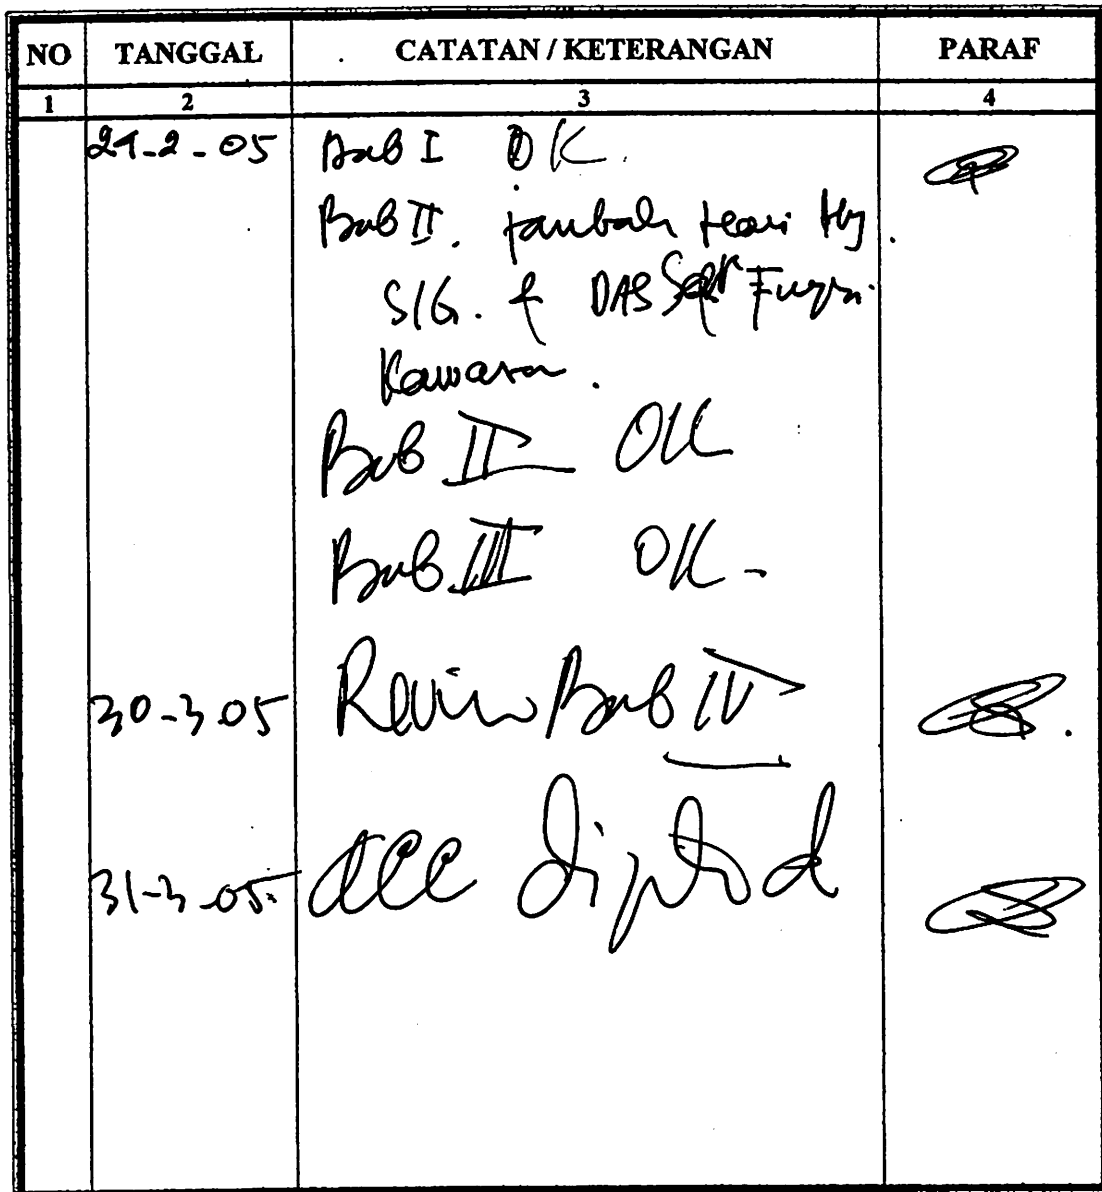 NO TANGGAL CATATAN / KETERANGAN PARAF
1 2 3 4
21-2-05 Bab I OK.
Bab II. tambah teori ttg.
SIG. & DAS Fungsi
Kawasan.
Bab II OK
Bab III OK -
30-3-05 Revisi Bab IV
31-3-05 acc